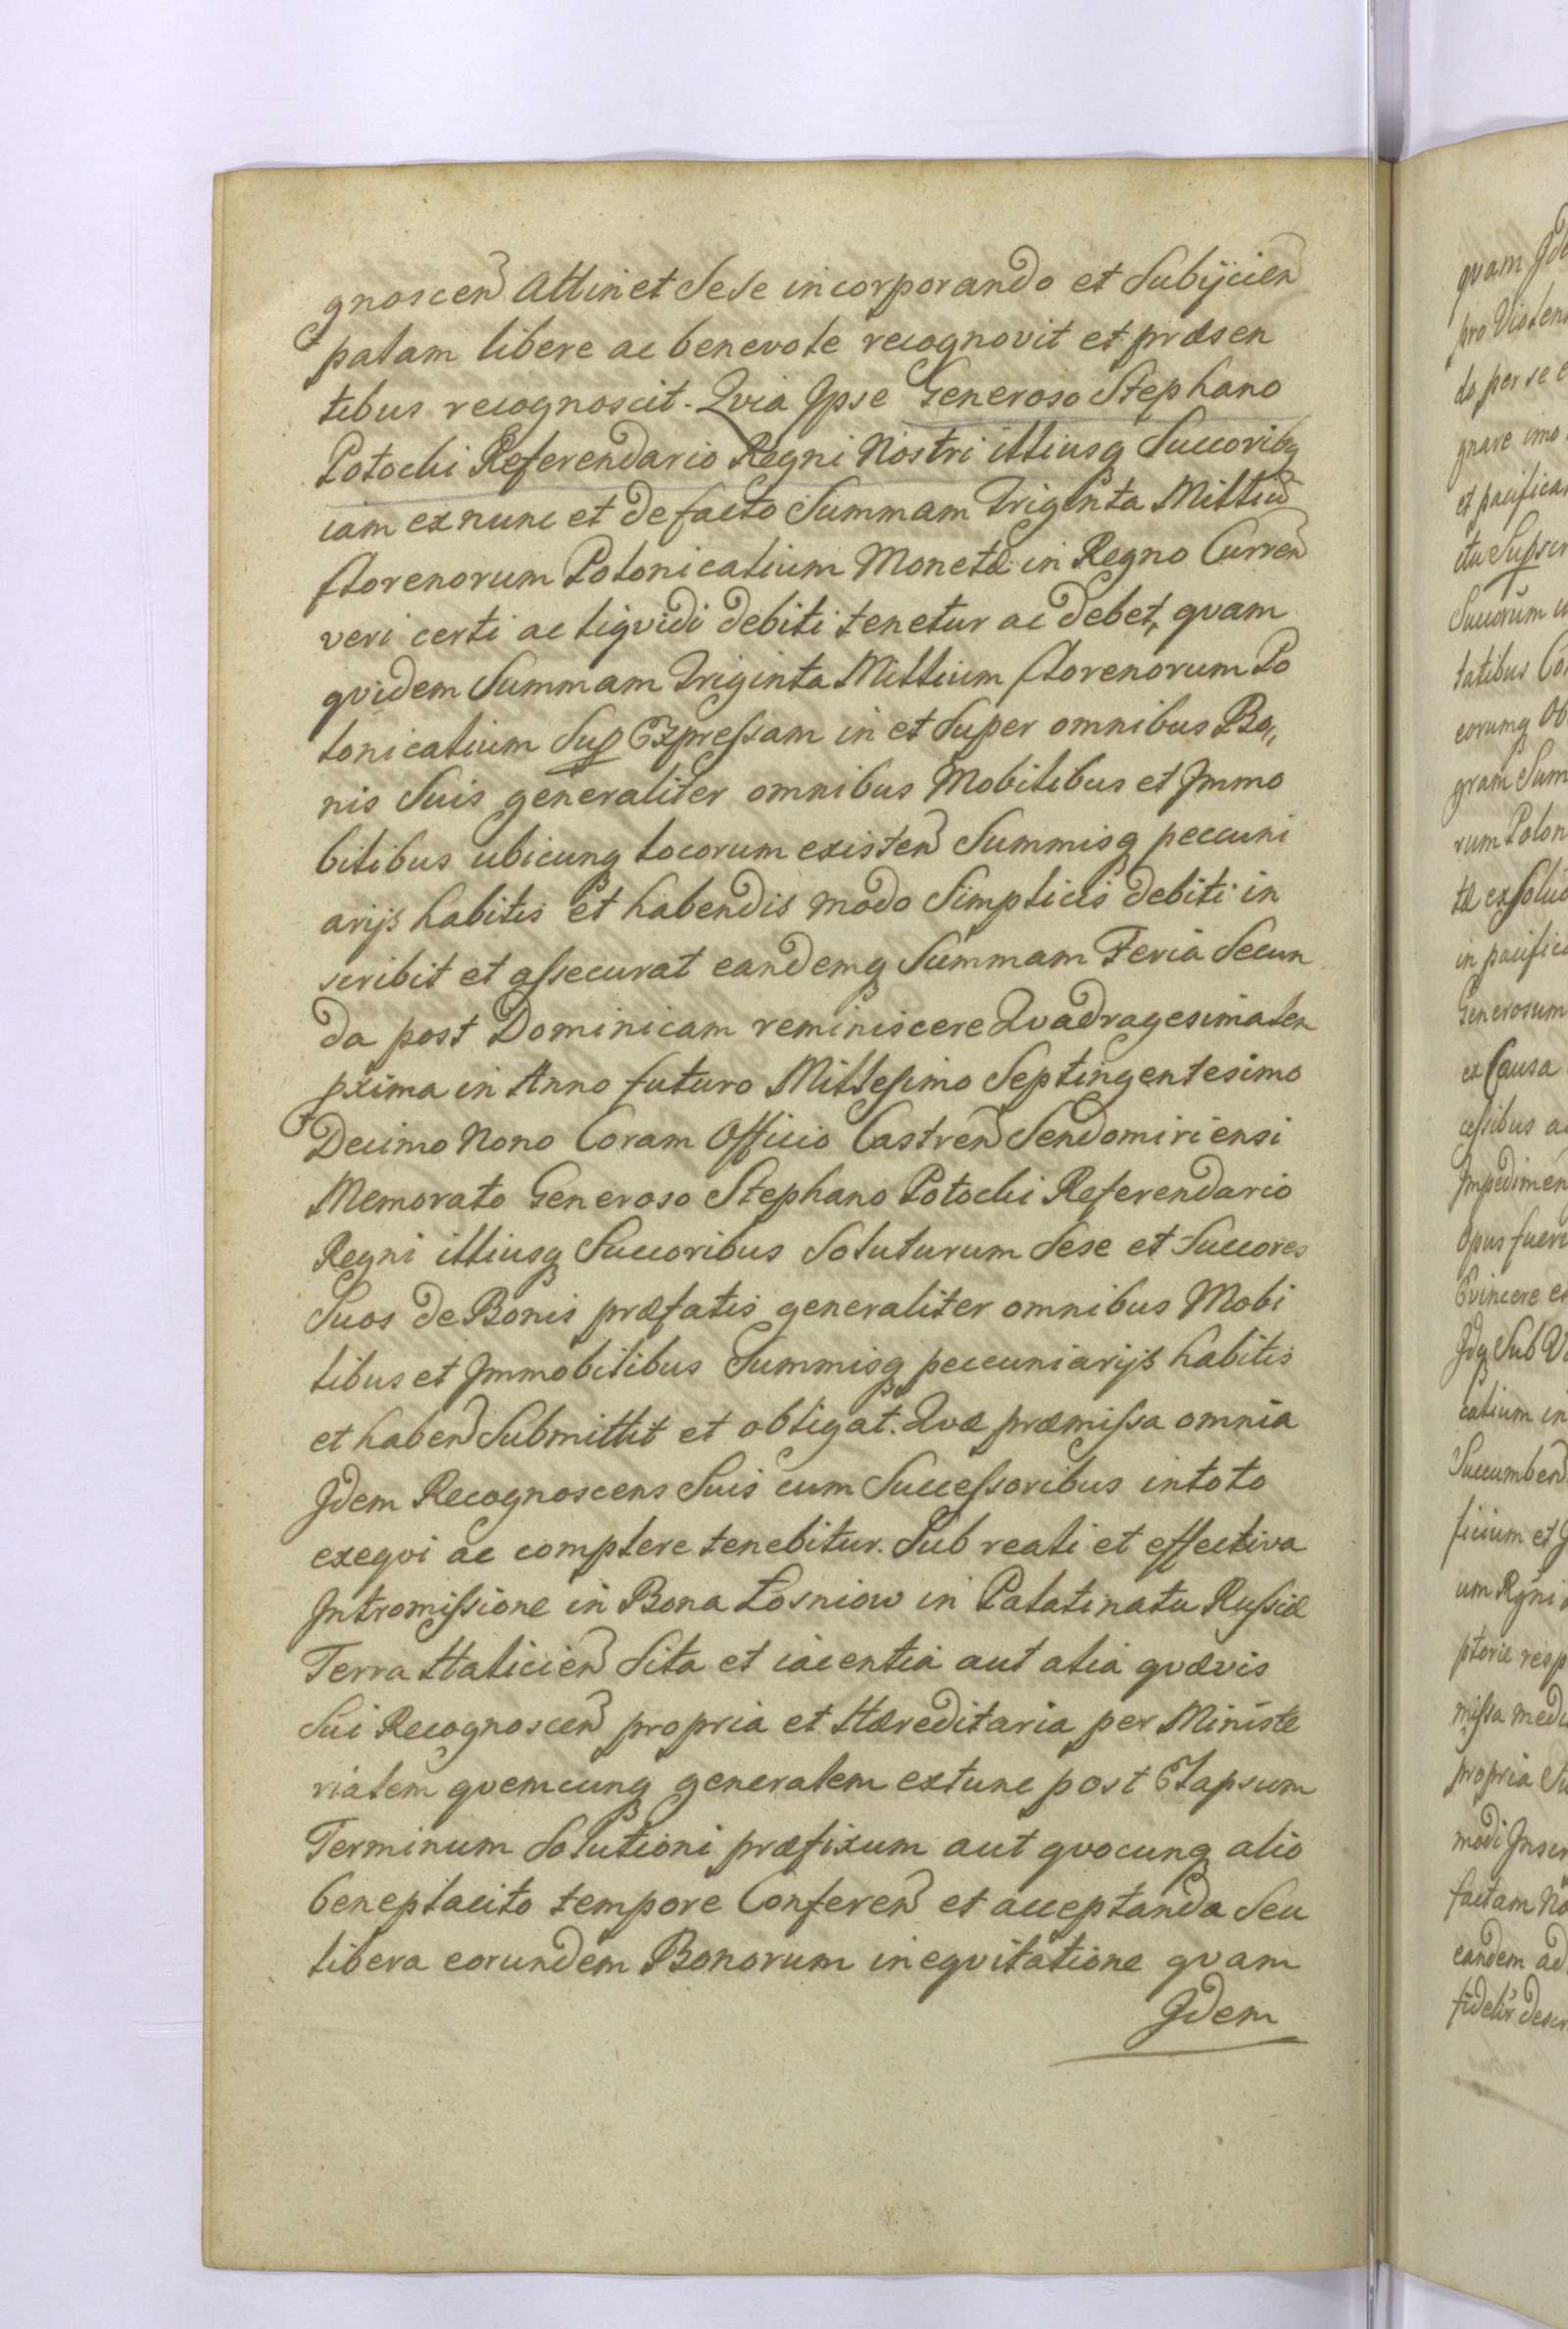 gnoscen Attinet Sese incorporando et Subijcien
palam libere ac benevole recognovit et præsen
tibus recognoscit. Qvia Ipse Generoso Stephano
Potocki Referendario Regni Nostri illiusq Succoribq
iam exnunc et defacto Summam Triginta Milliu
florenorum Polonicalium Monetæ in Regno Curren
veri certi ac liqvidi debiti tenetur ac debet, qvam
qvidem Summam Triginta Millium florenorum Po
lonicalium Sup Expressam in et Super omnibus Bo„
nis Suis generaliter omnibus Mobilibus et Immo
bilibus ubicunq locorum existen Summisq peccuni
arijs habitis et habendis modo Simplicis debiti in
scribit et assecurat eandemq Summam Feria Secun
da post Dominicam reminiscere Qvadragesimalen
pxima in Anno futuro Millesimo Septingentesimo
Decimo Nono Coram Officio Castren Sendomiriensi
Memorato Generoso Stephano Potocki Referendario
Regni illiusq Succoribus Soluturum Sese et Succores
Suos de Bonis præfatis generaliter omnibus Mobi
libus et Immobilibus Summisq peccuniarijs habitis
et haben Submittit et obligat. Qvæ præmissa omnia
Idem Recognoscens Suis cum Successoribus intoto
exeqvi ac complere tenebitur. Sub reali et effectiva
Intromissione in Bona Łosniow in Palatinatu Russiæ
Terra Halicien Sita et iacentia aut alia qvævis
Sui Recognoscen propria et Hæreditaria per Ministe
rialem qvemcunq generalem extunc post Elapsum
Terminum Solutioni præfixum aut qvocunq alio
beneplacito tempore Conferen et acceptanda Seu
libera eorundem Bonorum ineqvitatione qvam
Idem